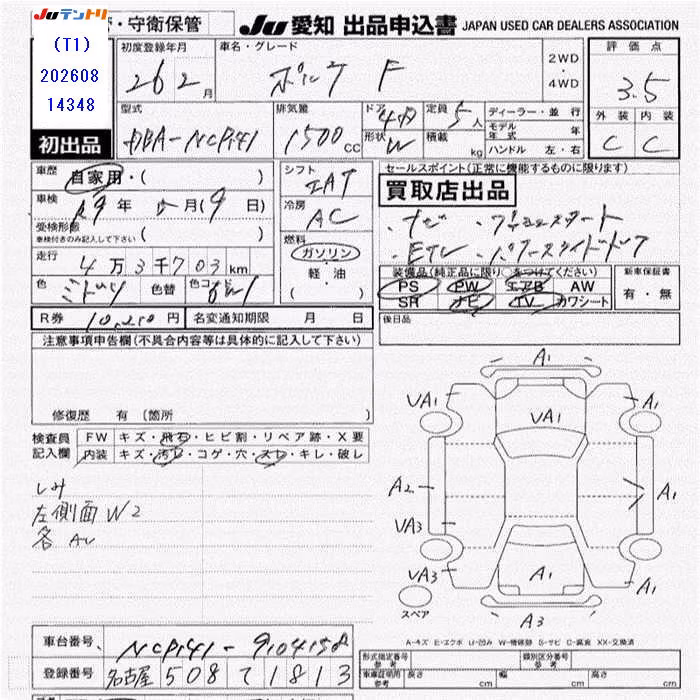 Juテントリ
・守衛保管
Ju 愛知 出品申込書 JAPAN USED CAR DEALERS ASSOCIATION
(T1)
202608
14348
初出品
初度登録年月
26 2 月
車名・グレード
ポルテ F
2WD
・
4WD
評価点
3.5
外装 内装
C C
型式
DBA-NCP141
排気量
1500 CC
ドア 4D
形状 W
定員 5 人
積載 kg
ディーラー・並行
モデル年式 年
ハンドル 左・右
車歴 自家用・( )
車検 29年 5月(9日)
受検形態
車検付きのみ記入して下さい ( )
走行 4万3千703km
色 ミドリ 色替 色コード 6W1
シフト IAT
冷房 AC
燃料
ガソリン
・
軽・油
( )
セールスポイント(正常に機能するものに限ります)
買取店出品
・ナビ ・プッシュスタート
・ETC ・パワースライドドア
装備品(純正品に限り○をつけてください)
PS PW エアB AW
SR ナビ TV カワシート
新車保証書
有・無
R券 10,210円 名変通知期限 月 日
後日品
注意事項申告欄(不具合内容等は具体的に記入して下さい)
修復歴 有(箇所 )
検査員記入欄
FW キズ・飛石・ヒビ割・リペア跡・X要
内装 キズ・汚レ・コゲ・穴・スレ・キレ・破レ
シミ
左側面W2
各AU
A1
VA1
A1
VA1
A2
A1
VA3
VA3
A1
A1
A3
スペア
A-キズ E-エクボ U-凹み W-補修跡 S-サビ C-腐食 XX-交換済
車台番号 NCP141-9104152
登録番号 名古屋 508 て 1813
形式指定番号
参考
類別区分番号
車庫証明用
参考
長さ cm 幅 cm 高さ cm